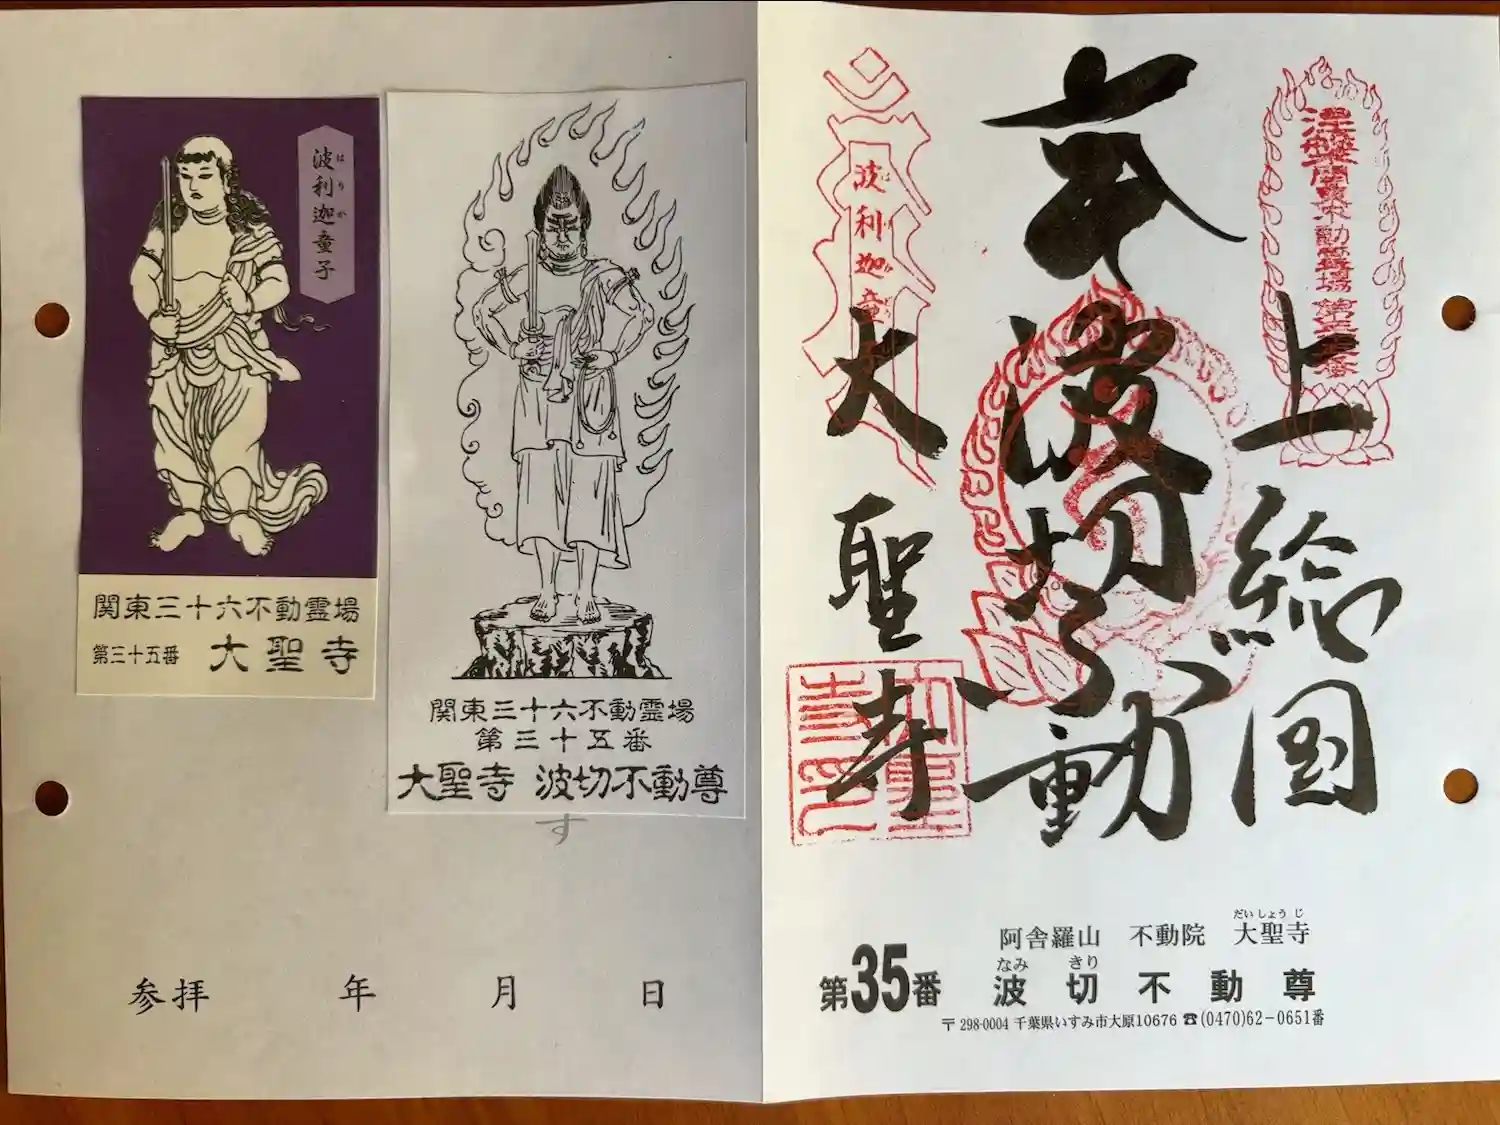 波利迦童子
はりか
関東三十六不動霊場
第三十五番 大聖寺
関東三十六不動霊場
第三十五番
大聖寺 波切不動尊
す
参拝 年 月 日
上総国
本
波切不動
大聖寺
波利迦童
第三十五番
だいしょうじ
阿舎羅山 不動院 大聖寺
なみ きり
第35番 波切不動尊
〒298-0004 千葉県いすみ市大原10676 ☎(0470)62-0651番